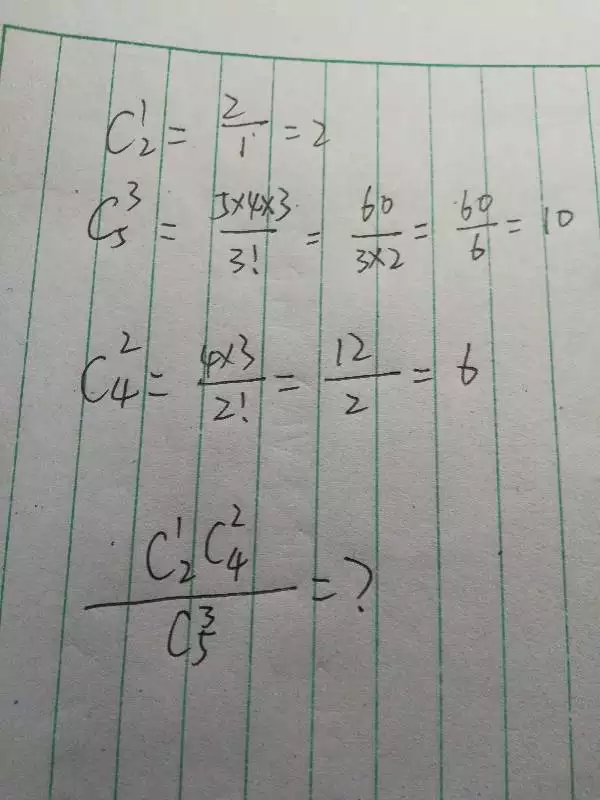 C₂¹ = 2/1 = 2
C₅³ = 5×4×3/3! = 60/3×2 = 60/6 = 10
C₄² = 4×3/2! = 12/2 = 6
C₂¹C₄²/C₅³ = ?